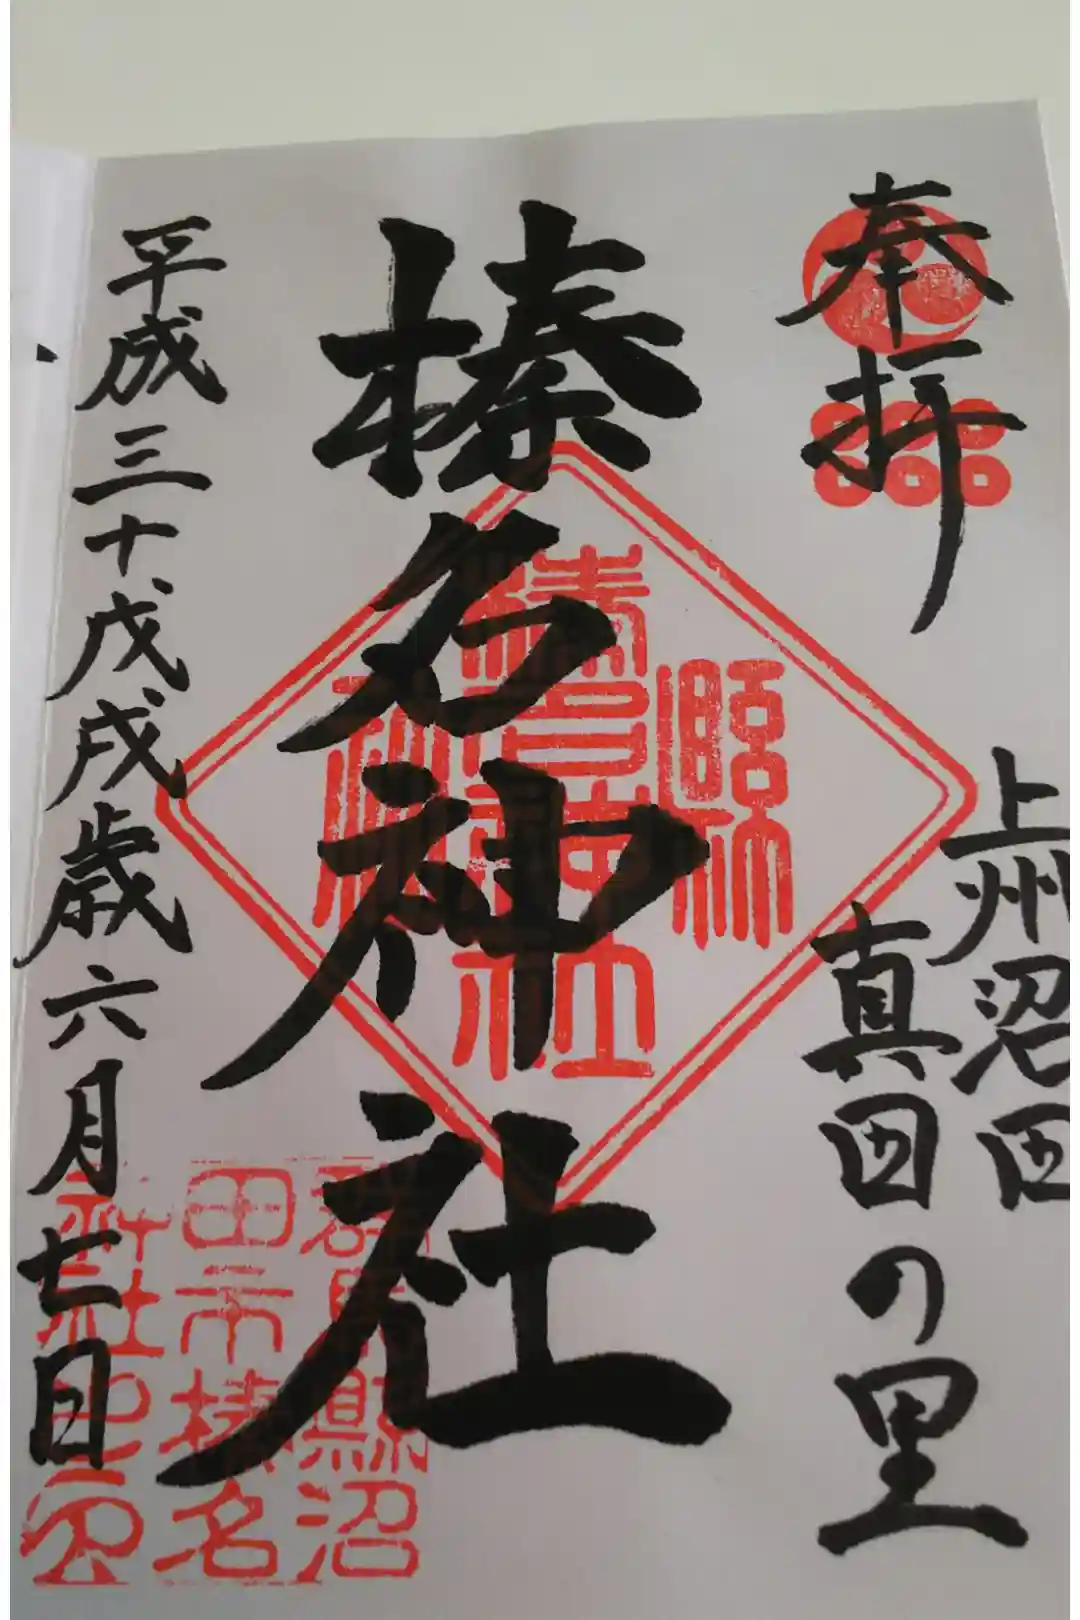 奉拝
上州沼田
真田の里
榛名神社
平成三十戊戌歳六月七日
群馬県沼
田市榛名
神社之印